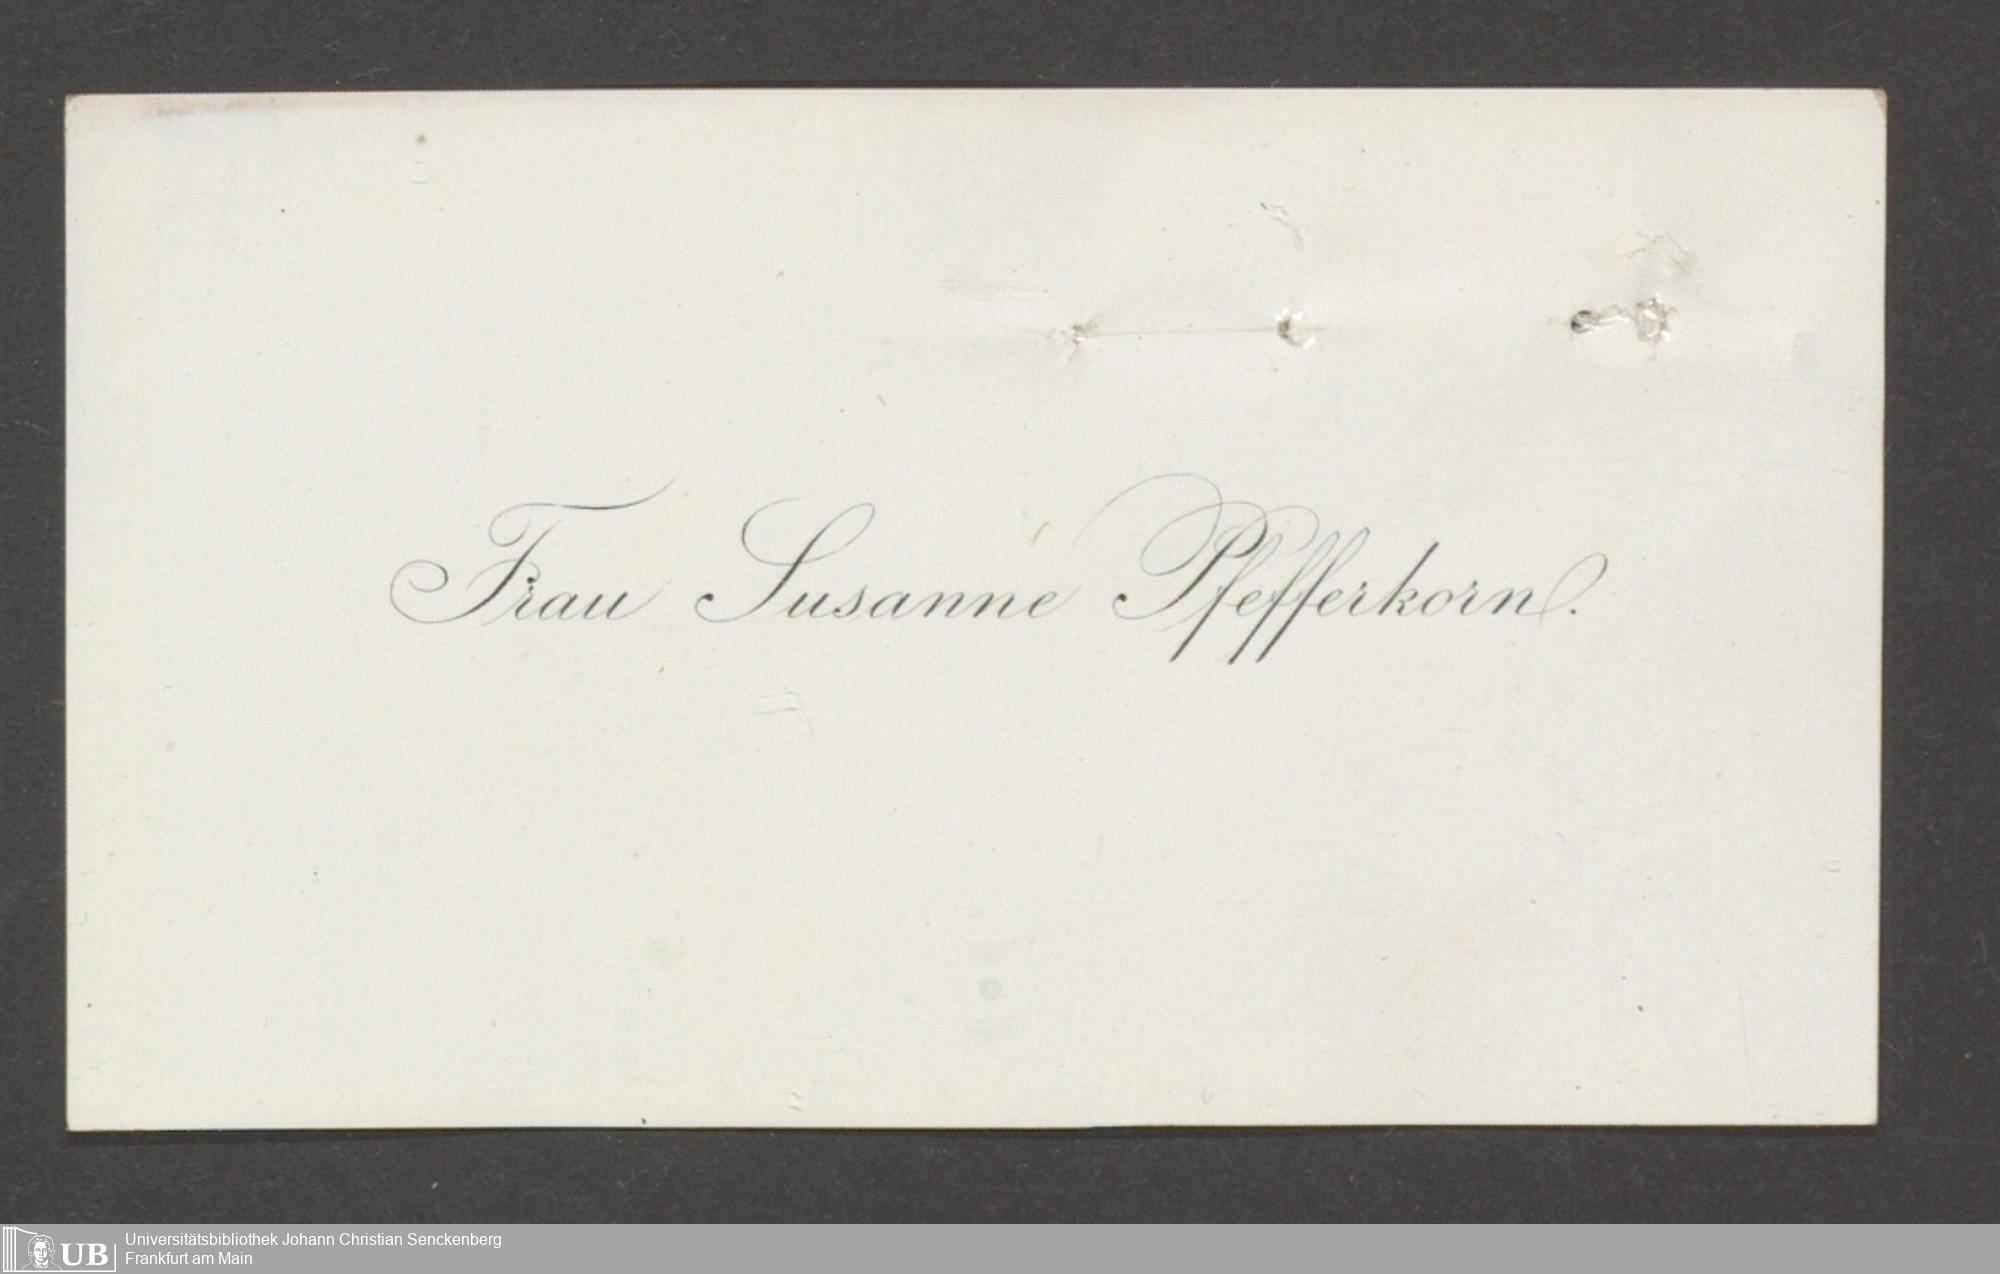 Frau Susanne Pfefferkorn.
UB
Universitätsbibliothek Johann Christian Senckenberg
Frankfurt am Main